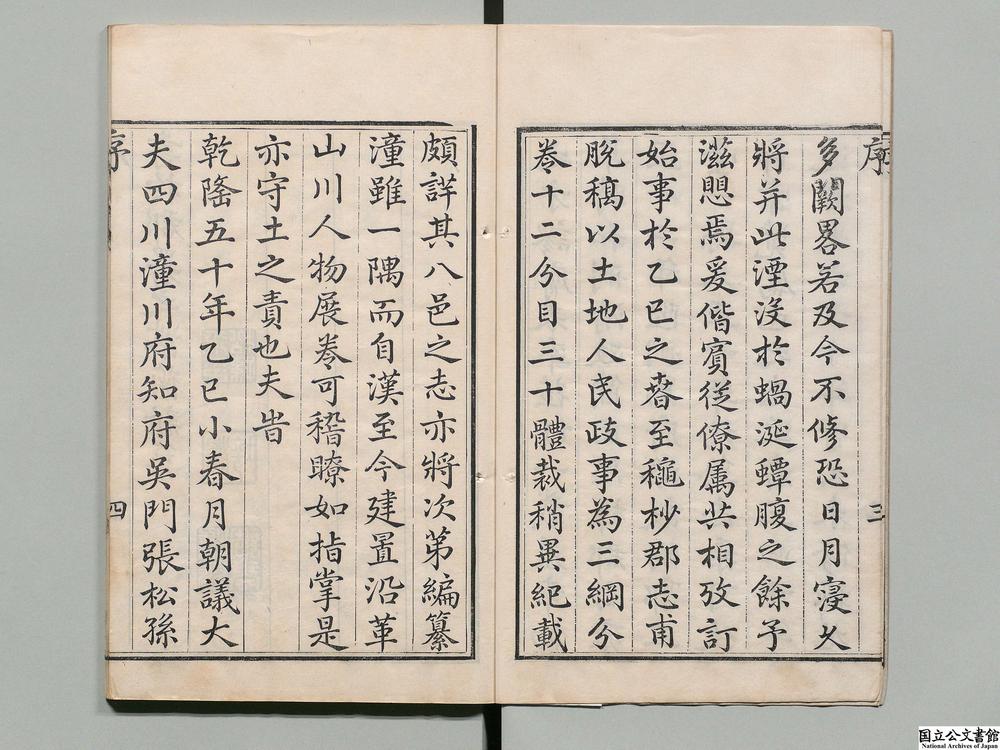 序
三
多闕畧若及今不修恐日月寖久
將并此湮沒於蝸涎蟫腹之餘予
滋愳焉爰偕賓從僚属共相攷訂
始事於乙巳之春至龝杪郡志甫
脫稿以土地人民政事為三綱分
卷十二分目三十體裁稍異紀載
頗詳其八邑之志亦將次第編纂
潼雖一隅而自漢至今建置沿革
山川人物展卷可稽瞭如指掌是
亦守土之責也夫旹
乾隆五十年乙巳小春月朝議大
夫四川潼川府知府吳門張松孫
序
四
国立公文書館
National Archives of Japan